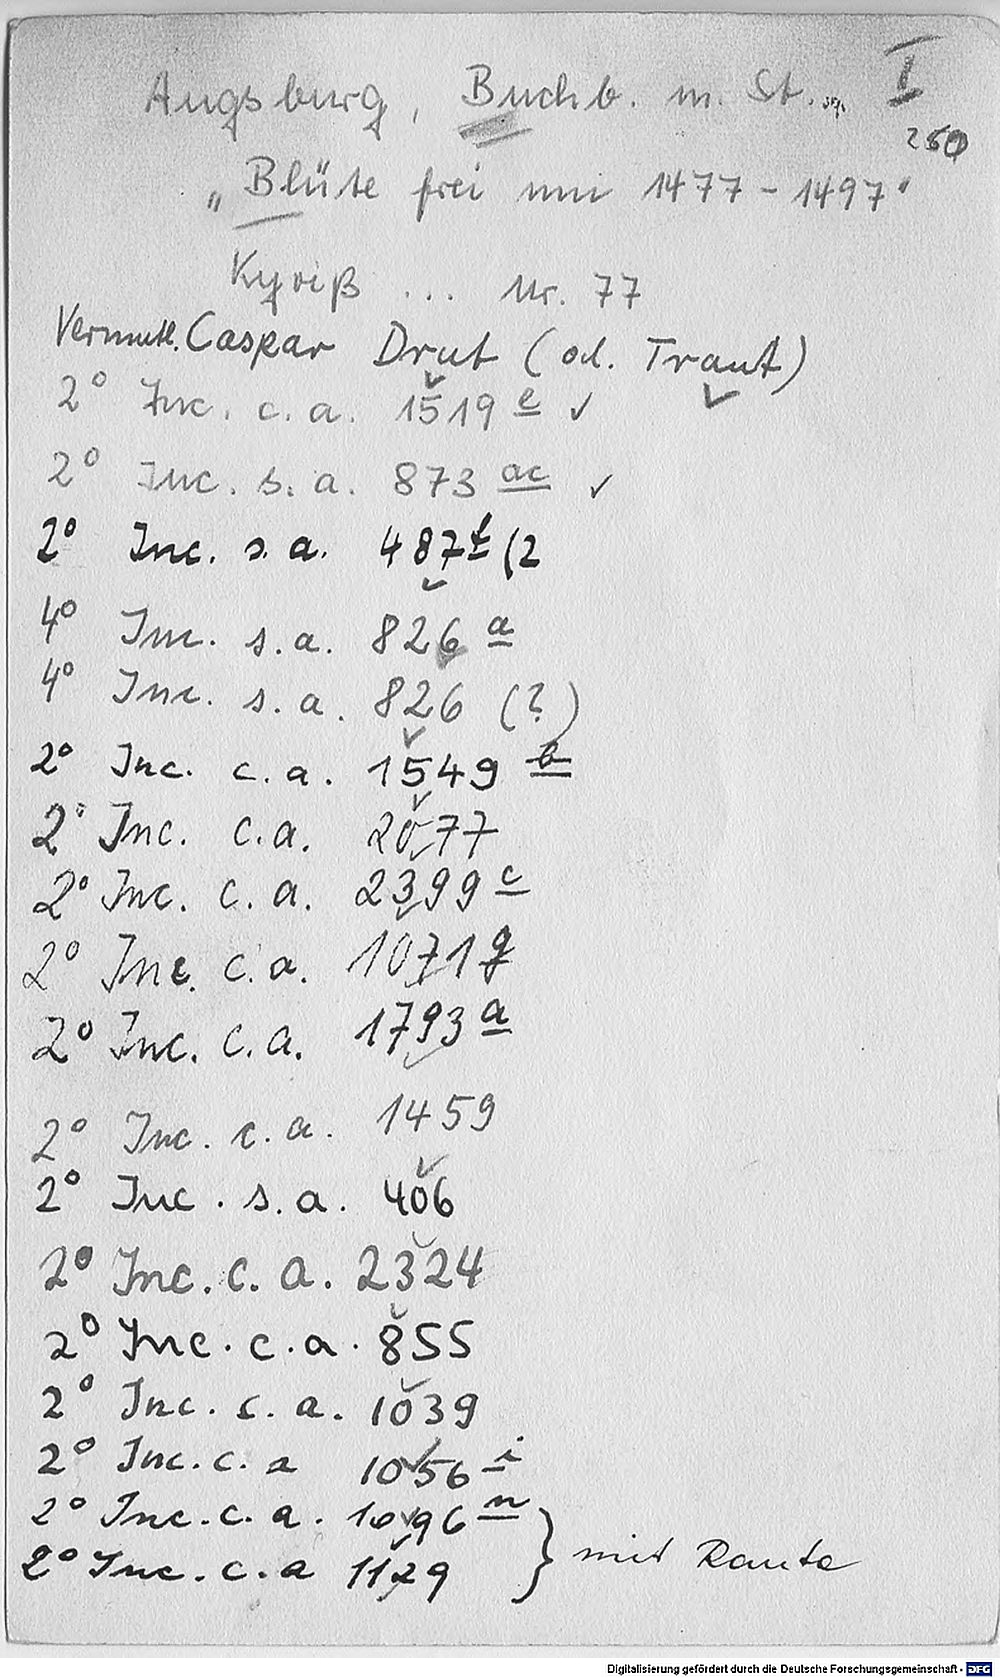 Augsburg, Buchb. m. St. I
250
"Blüte frei um 1477-1497"
Kyriß ... Nr. 77
Vermutl. Caspar Drut (od. Traut)
2° Inc. c.a. 1519 e ✓
2° Inc. s.a. 873 ac ✓
2° Inc. s.a. 487 f (2
4° Inc. s.a. 826 a
4° Inc. s.a. 826 (?)
2° Inc. c.a. 1549 b
2° Inc. c.a. 2077
2° Inc. c.a. 2399 c
2° Inc. c.a. 1071 g
2° Inc. c.a. 1793 a
2° Inc. c.a. 1459
2° Inc. s.a. 406
2° Inc. c.a. 2324
2° Inc. c.a. 855
2° Inc. c.a. 1039
2° Inc. c. a 1056 i
2° Inc. c.a. 1096 n
2° Inc. c.a 1129 } mit Raute
Digitalisierung gefördert durch die Deutsche Forschungsgemeinschaft - DFG